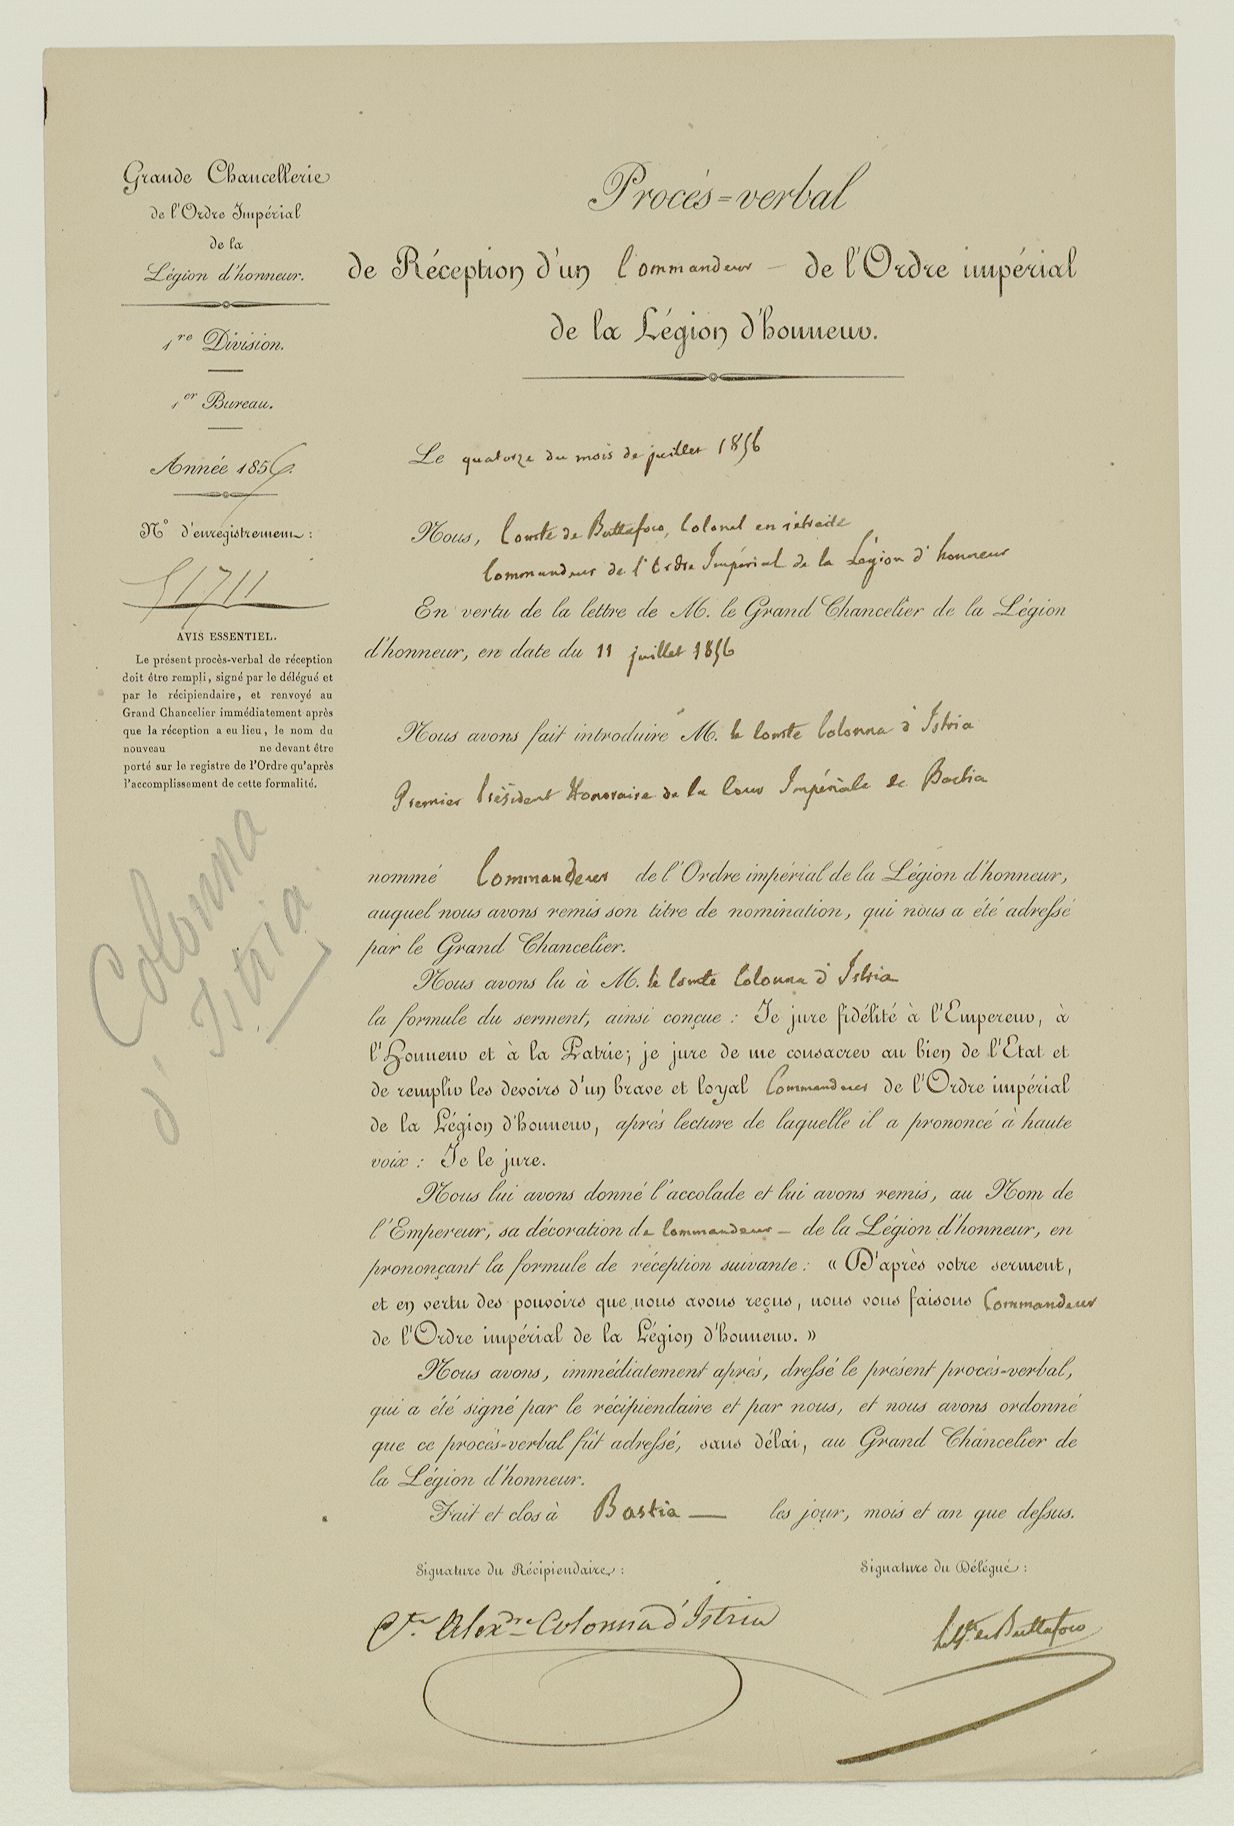 Grande Chancellerie
de l'Ordre Impérial
de la
Légion d'honneur.
1re Division.
1er Bureau.
Année 1856.
N° d'enregistrement :
51711
AVIS ESSENTIEL.
Le présent procès-verbal de réception
doit être rempli, signé par le délégué et
par le récipiendaire, et renvoyé au
Grand Chancelier immédiatement après
que la réception a eu lieu, le nom du
nouveau ne devant être
porté sur le registre de l'Ordre qu'après
l'accomplissement de cette formalité.
Colonna
d'Istria
Procès=verbal
de Réception d'un Commandeur de l'Ordre impérial
de la Légion d'honneur.
Le quatorze du mois de juillet 1856
Nous, Comte de Buttafoco, Colonel en retraite
Commandeur de l'Ordre Impérial de la Légion d'honneur
En vertu de la lettre de M. le Grand Chancelier de la Légion
d'honneur, en date du 11 juillet 1856
Nous avons fait introduire M. le Comte Colonna d'Istria
Premier Président Honoraire de la Cour Impériale de Bastia
nommé Commandeur de l'Ordre impérial de la Légion d'honneur,
auquel nous avons remis son titre de nomination, qui nous a été adressé
par le Grand Chancelier.
Nous avons lu à M. le Comte Colonna d'Istria
la formule du serment, ainsi conçue : Je jure fidélité à l'Empereur, à
l'Honneur et à la Patrie; je jure de me consacrer au bien de l'Etat et
de remplir les devoirs d'un brave et loyal Commandeur de l'Ordre impérial
de la Légion d'honneur, après lecture de laquelle il a prononcé à haute
voix : Je le jure.
Nous lui avons donné l'accolade et lui avons remis, au Nom de
l'Empereur, sa décoration de Commandeur – de la Légion d'honneur, en
prononçant la formule de réception suivante : « D'après votre serment,
et en vertu des pouvoirs que nous avons reçus, nous vous faisons Commandeur
de l'Ordre impérial de la Légion d'honneur. »
Nous avons, immédiatement après, dressé le présent procès-verbal,
qui a été signé par le récipiendaire et par nous, et nous avons ordonné
que ce procès-verbal fût adressé, sans délai, au Grand Chancelier de
la Légion d'honneur.
Fait et clos à Bastia — les jour, mois et an que dessus.
Signature du Récipiendaire :
Signature du Délégué :
Cte Alexdre Colonna d'Istria
de Buttafoco